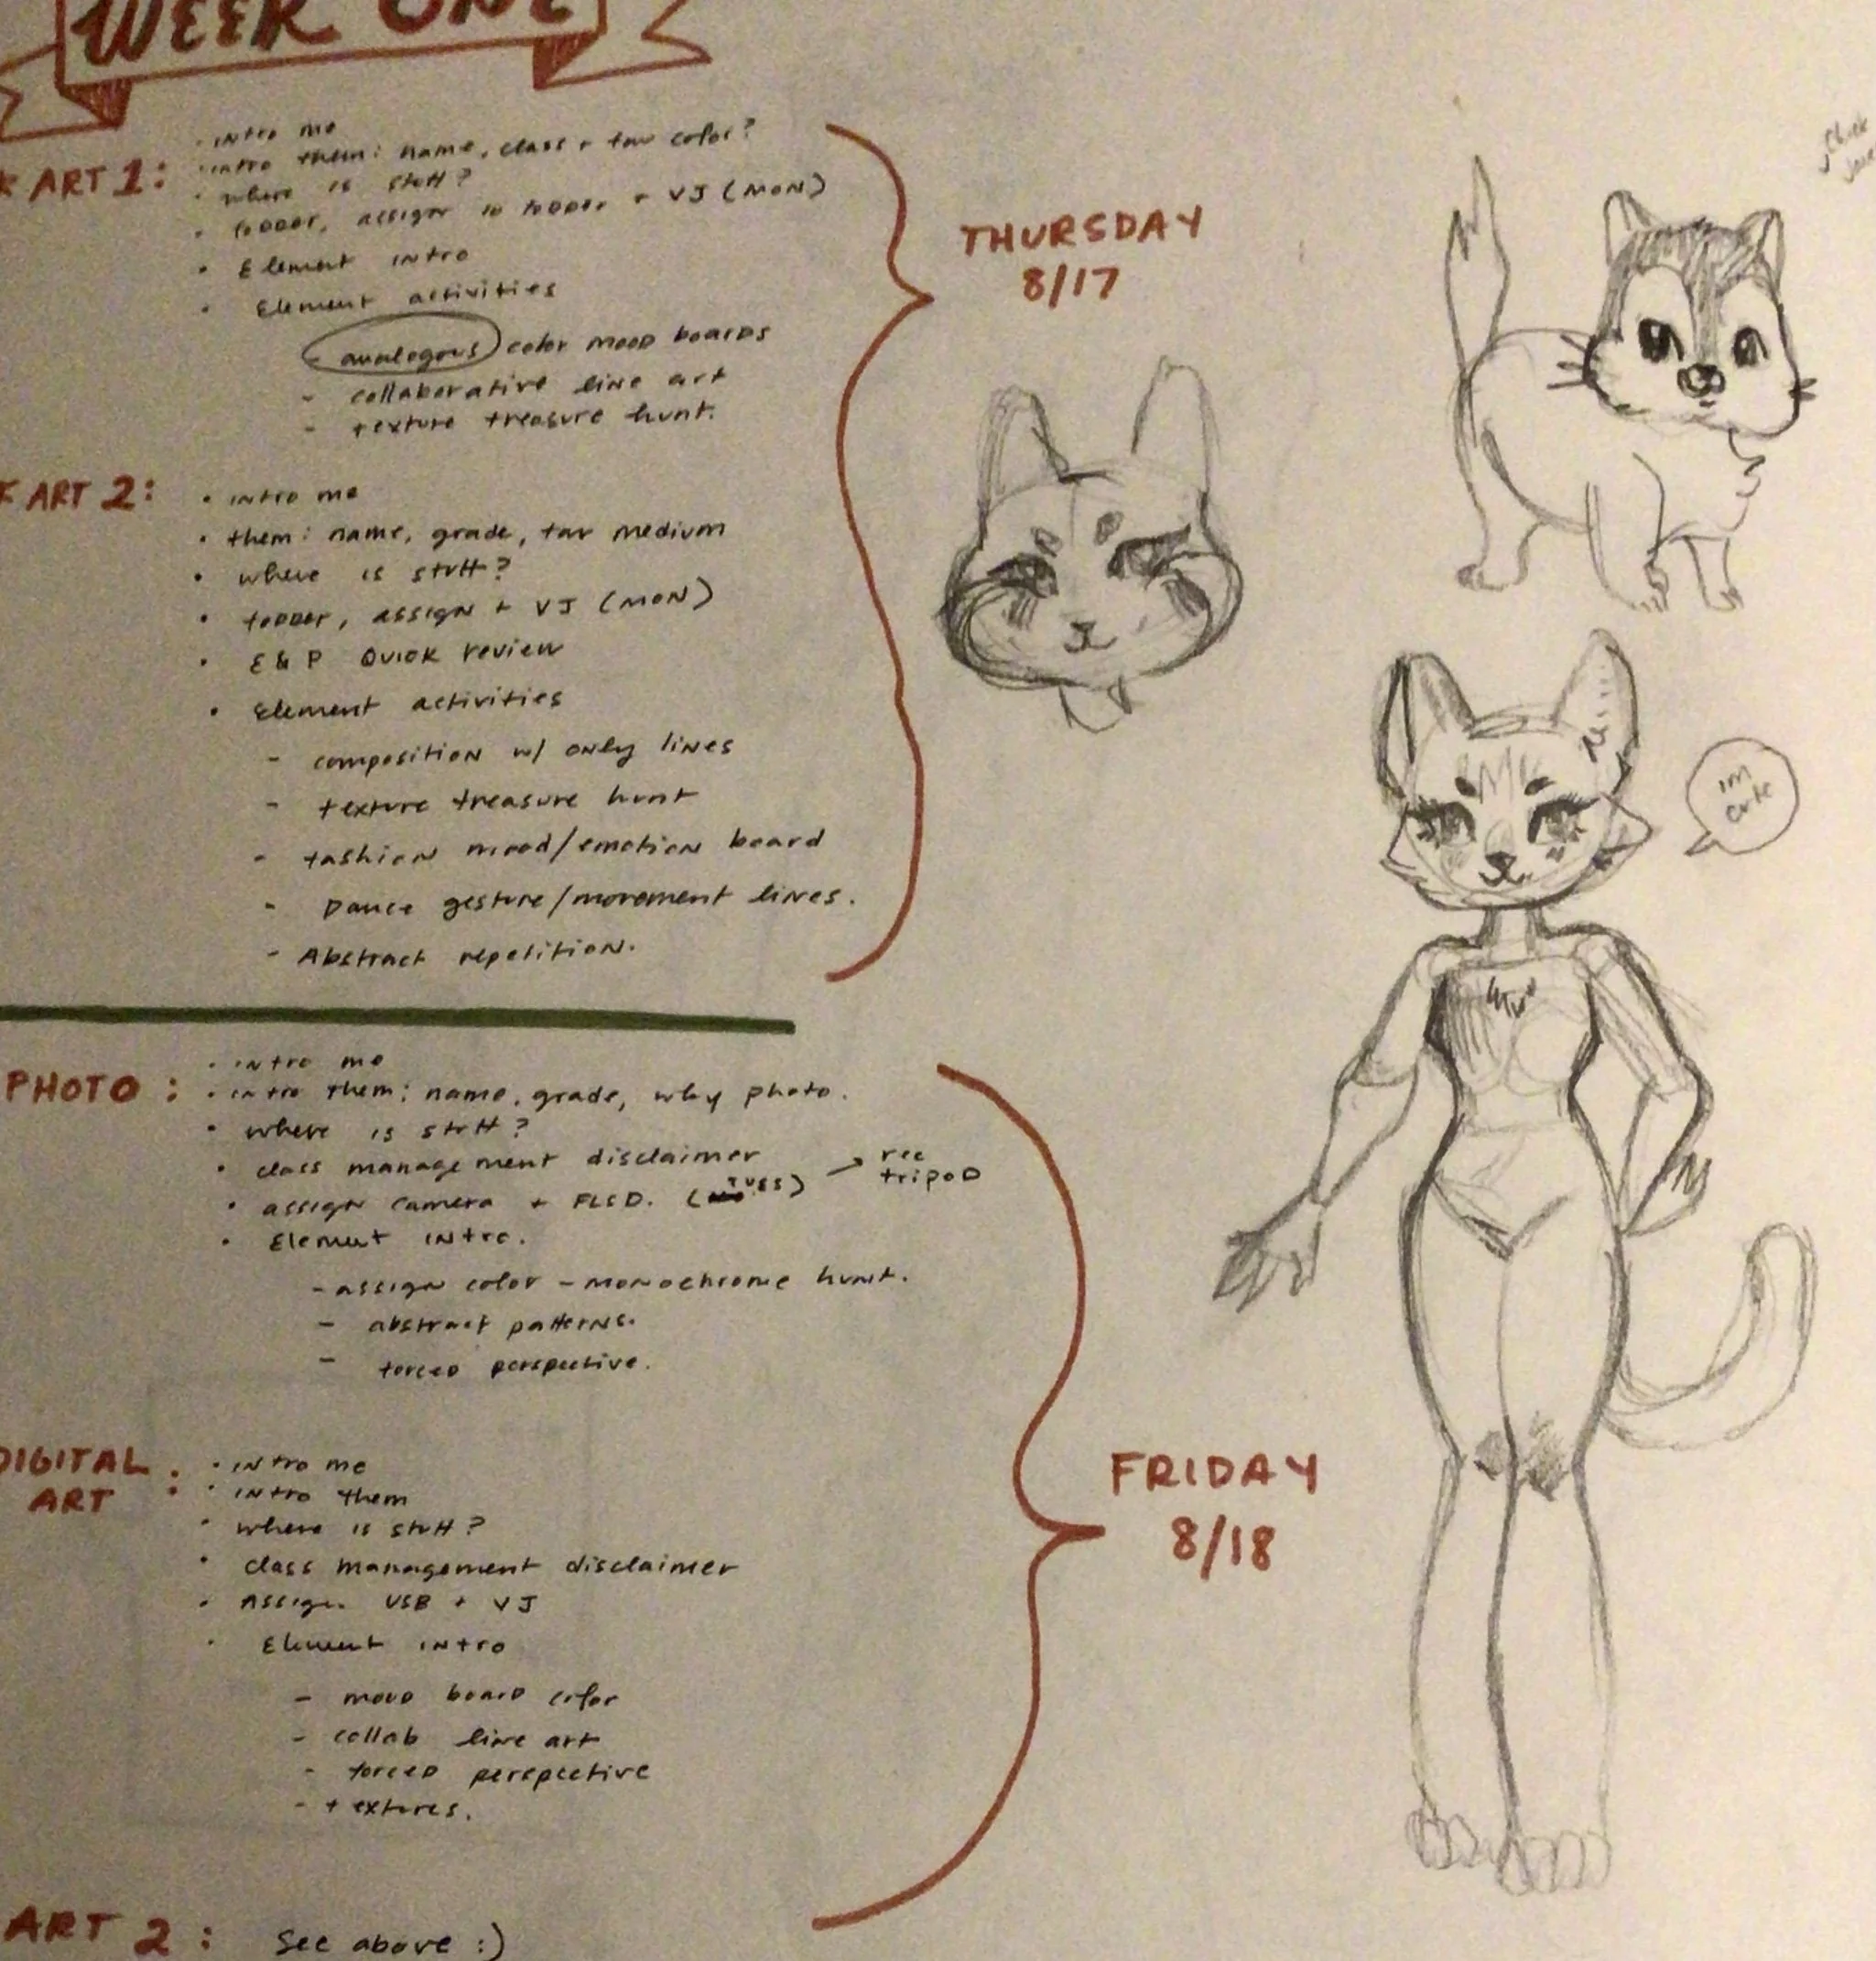 WEEK ONE
ART 1:
• intro me
• intro them: name, class + fav color?
• where is stuff?
• folder, assign to folder + VJ (MON)
• Element intro
• Element activities
- analogous color mood boards
- collaborative line art
- texture treasure hunt.
THURSDAY
8/17
ART 2:
• intro me
• them: name, grade, fav medium
• where is stuff?
• folder, assign + VJ (MON)
• E & P Quick review
• Element activities
- composition w/ only lines
- texture treasure hunt
- fashion mood/emotion board
- Dance gesture/movement lines.
- Abstract repetition.
im
cute
PHOTO:
• intro me
• intro them: name, grade, why photo.
• where is stuff?
• class management disclaimer
• assign camera + FLSD. (TUES) → rec
tripod
• Element intro.
- assign color - monochrome hunt.
- abstract patterns.
- forced perspective.
DIGITAL
ART :
• intro me
• intro them
• where is stuff?
• class management disclaimer
• Assign USB + VJ
• Element intro
- mood board color
- collab line art
- forced perspective
- textures.
FRIDAY
8/18
ART 2: See above :)